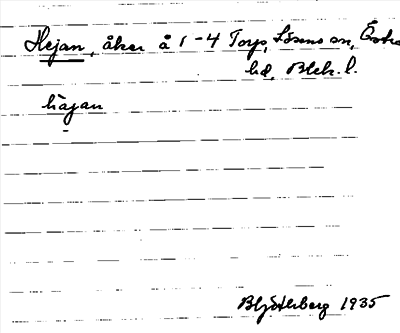 Hejan, åker å 1-4 Torp, Lösens sn, Östra
hd, Blek. l.
häjan
1935